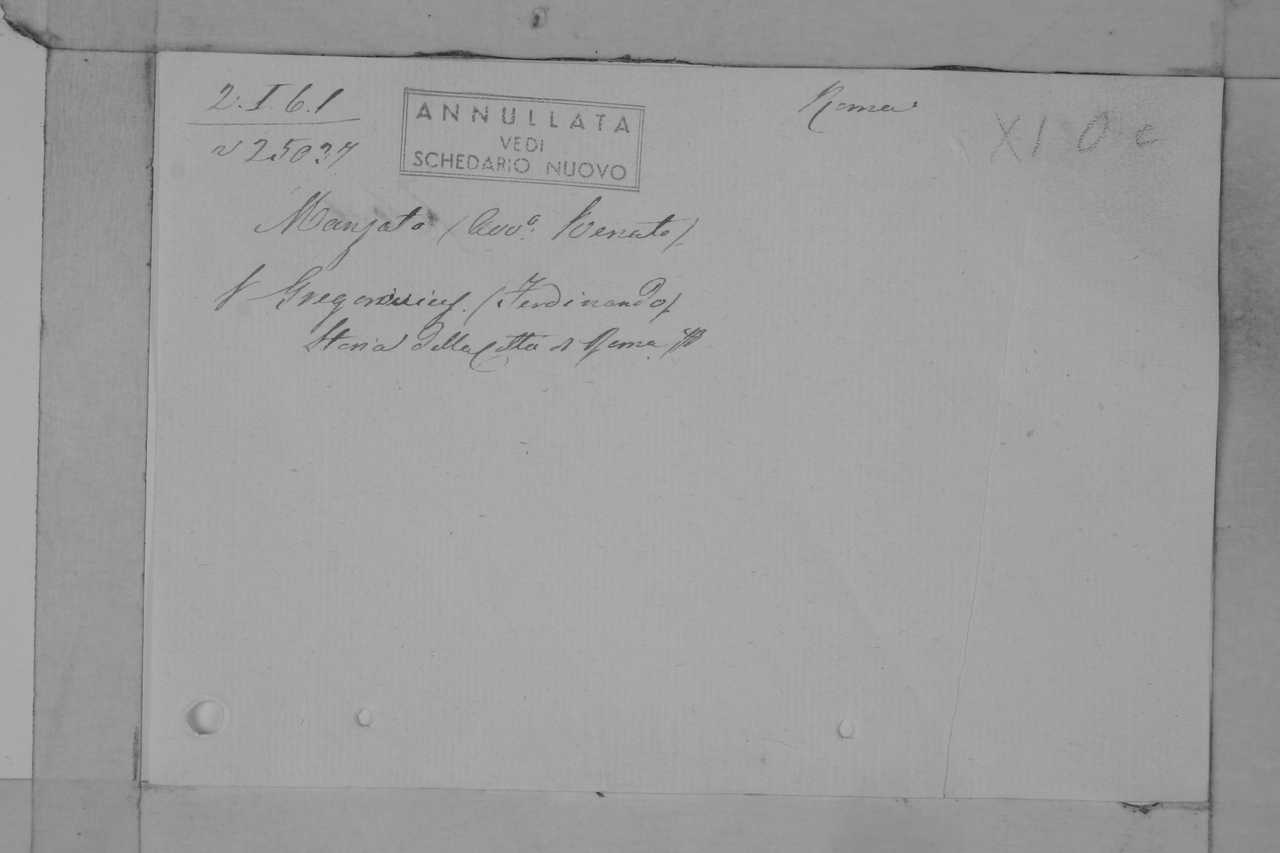 2. I. 6. 1
Roma
XI O c
ANNULLATA
VEDI
SCHEDARIO NUOVO
25037
Manzato (Avv.º Renato)
Gregorovius. (Ferdinando)
Storia della Città di Roma